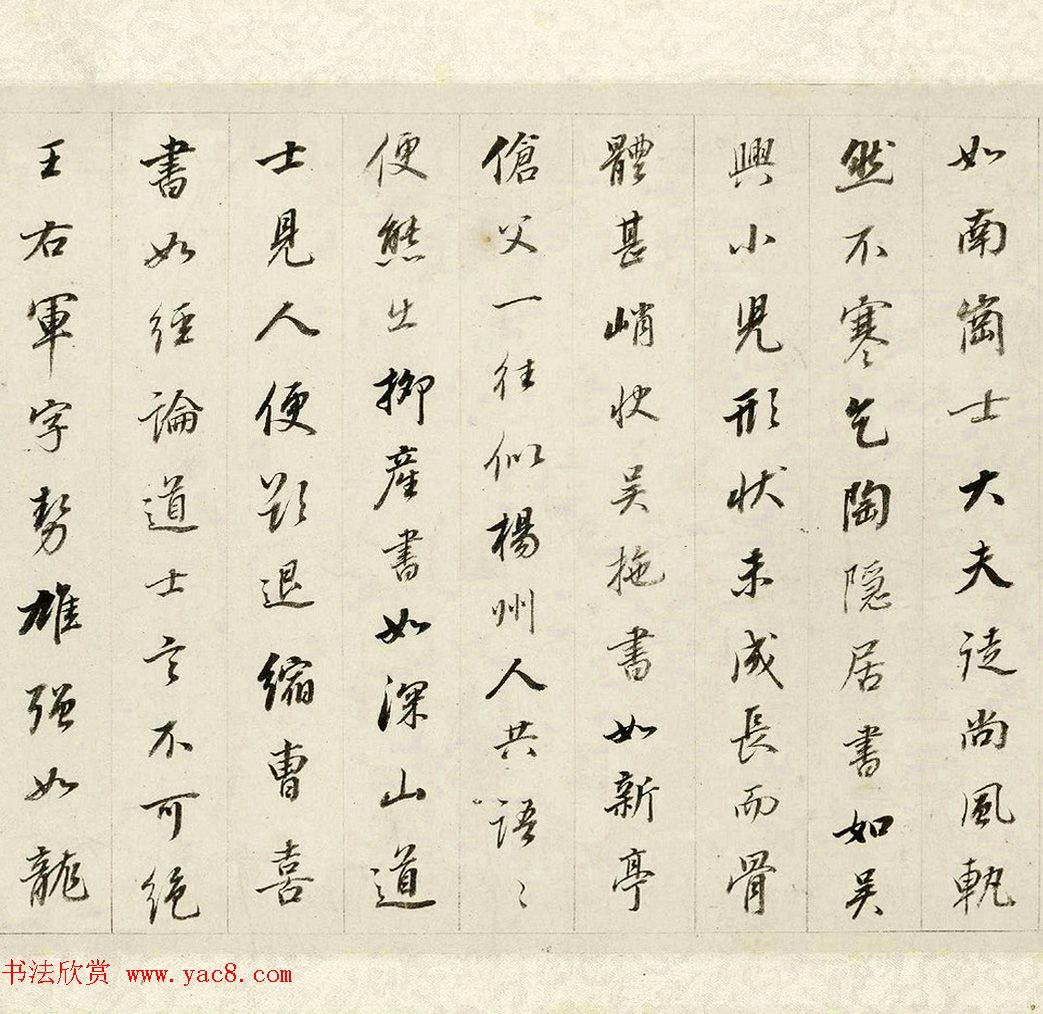 如南崗士大夫徒尚風軌
然不寒乞陶隱居書如吴
興小児形狀未成長而骨
體甚峭快吴拖書如新亭
傖父一往似楊州人共語〻
便態出柳產書如深山道
士見人便欵退縮曹喜
書如經論道士言不可絶
王右軍字勢雄强如龍
书法欣赏 www.yac8.com